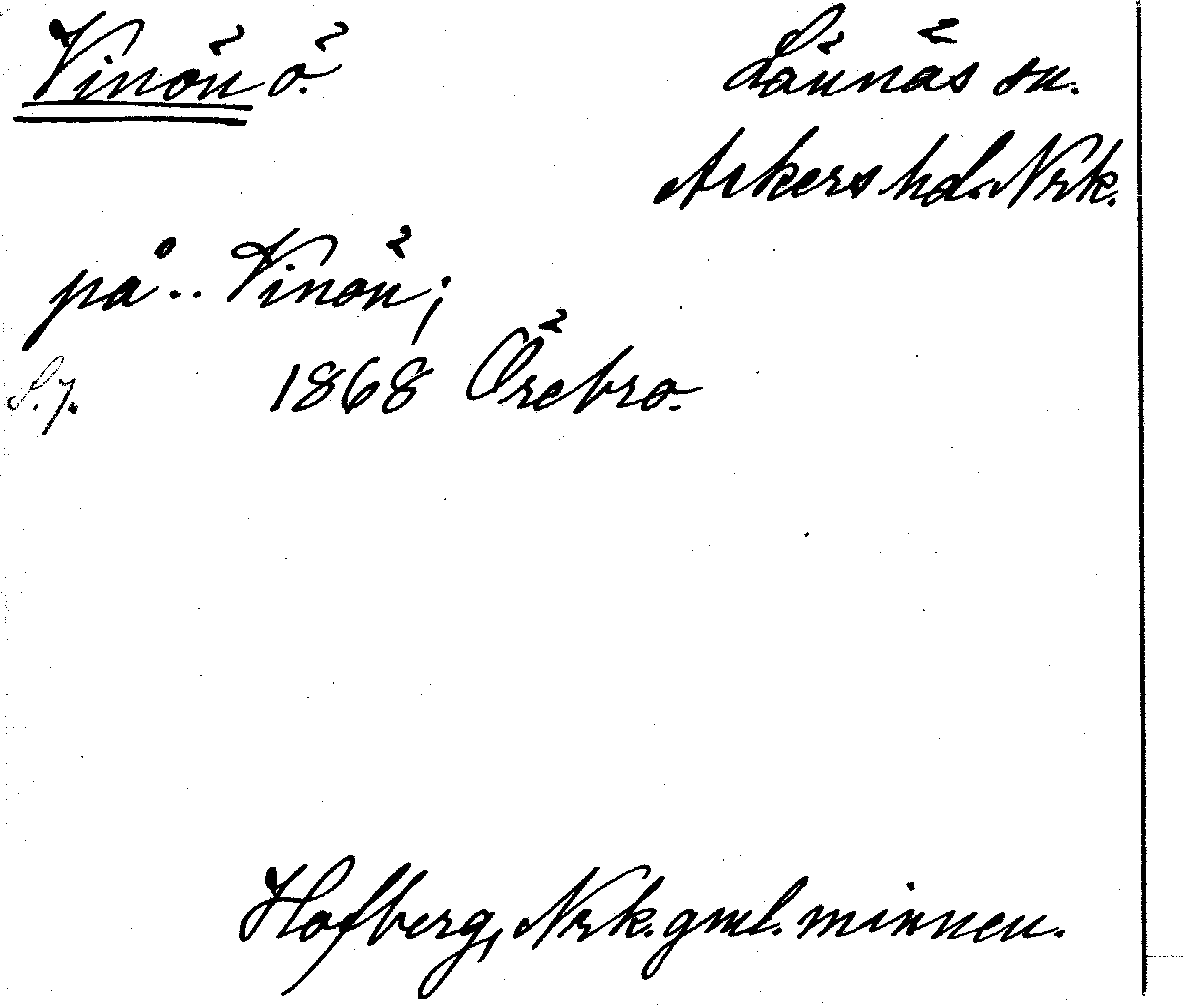 Vinön ö. Lännäs sn.
Askers hd. Nrk.
på .. Vinön;
S. 7. 1868 Örebro.
Hofberg, Nrk. gml. minnen.